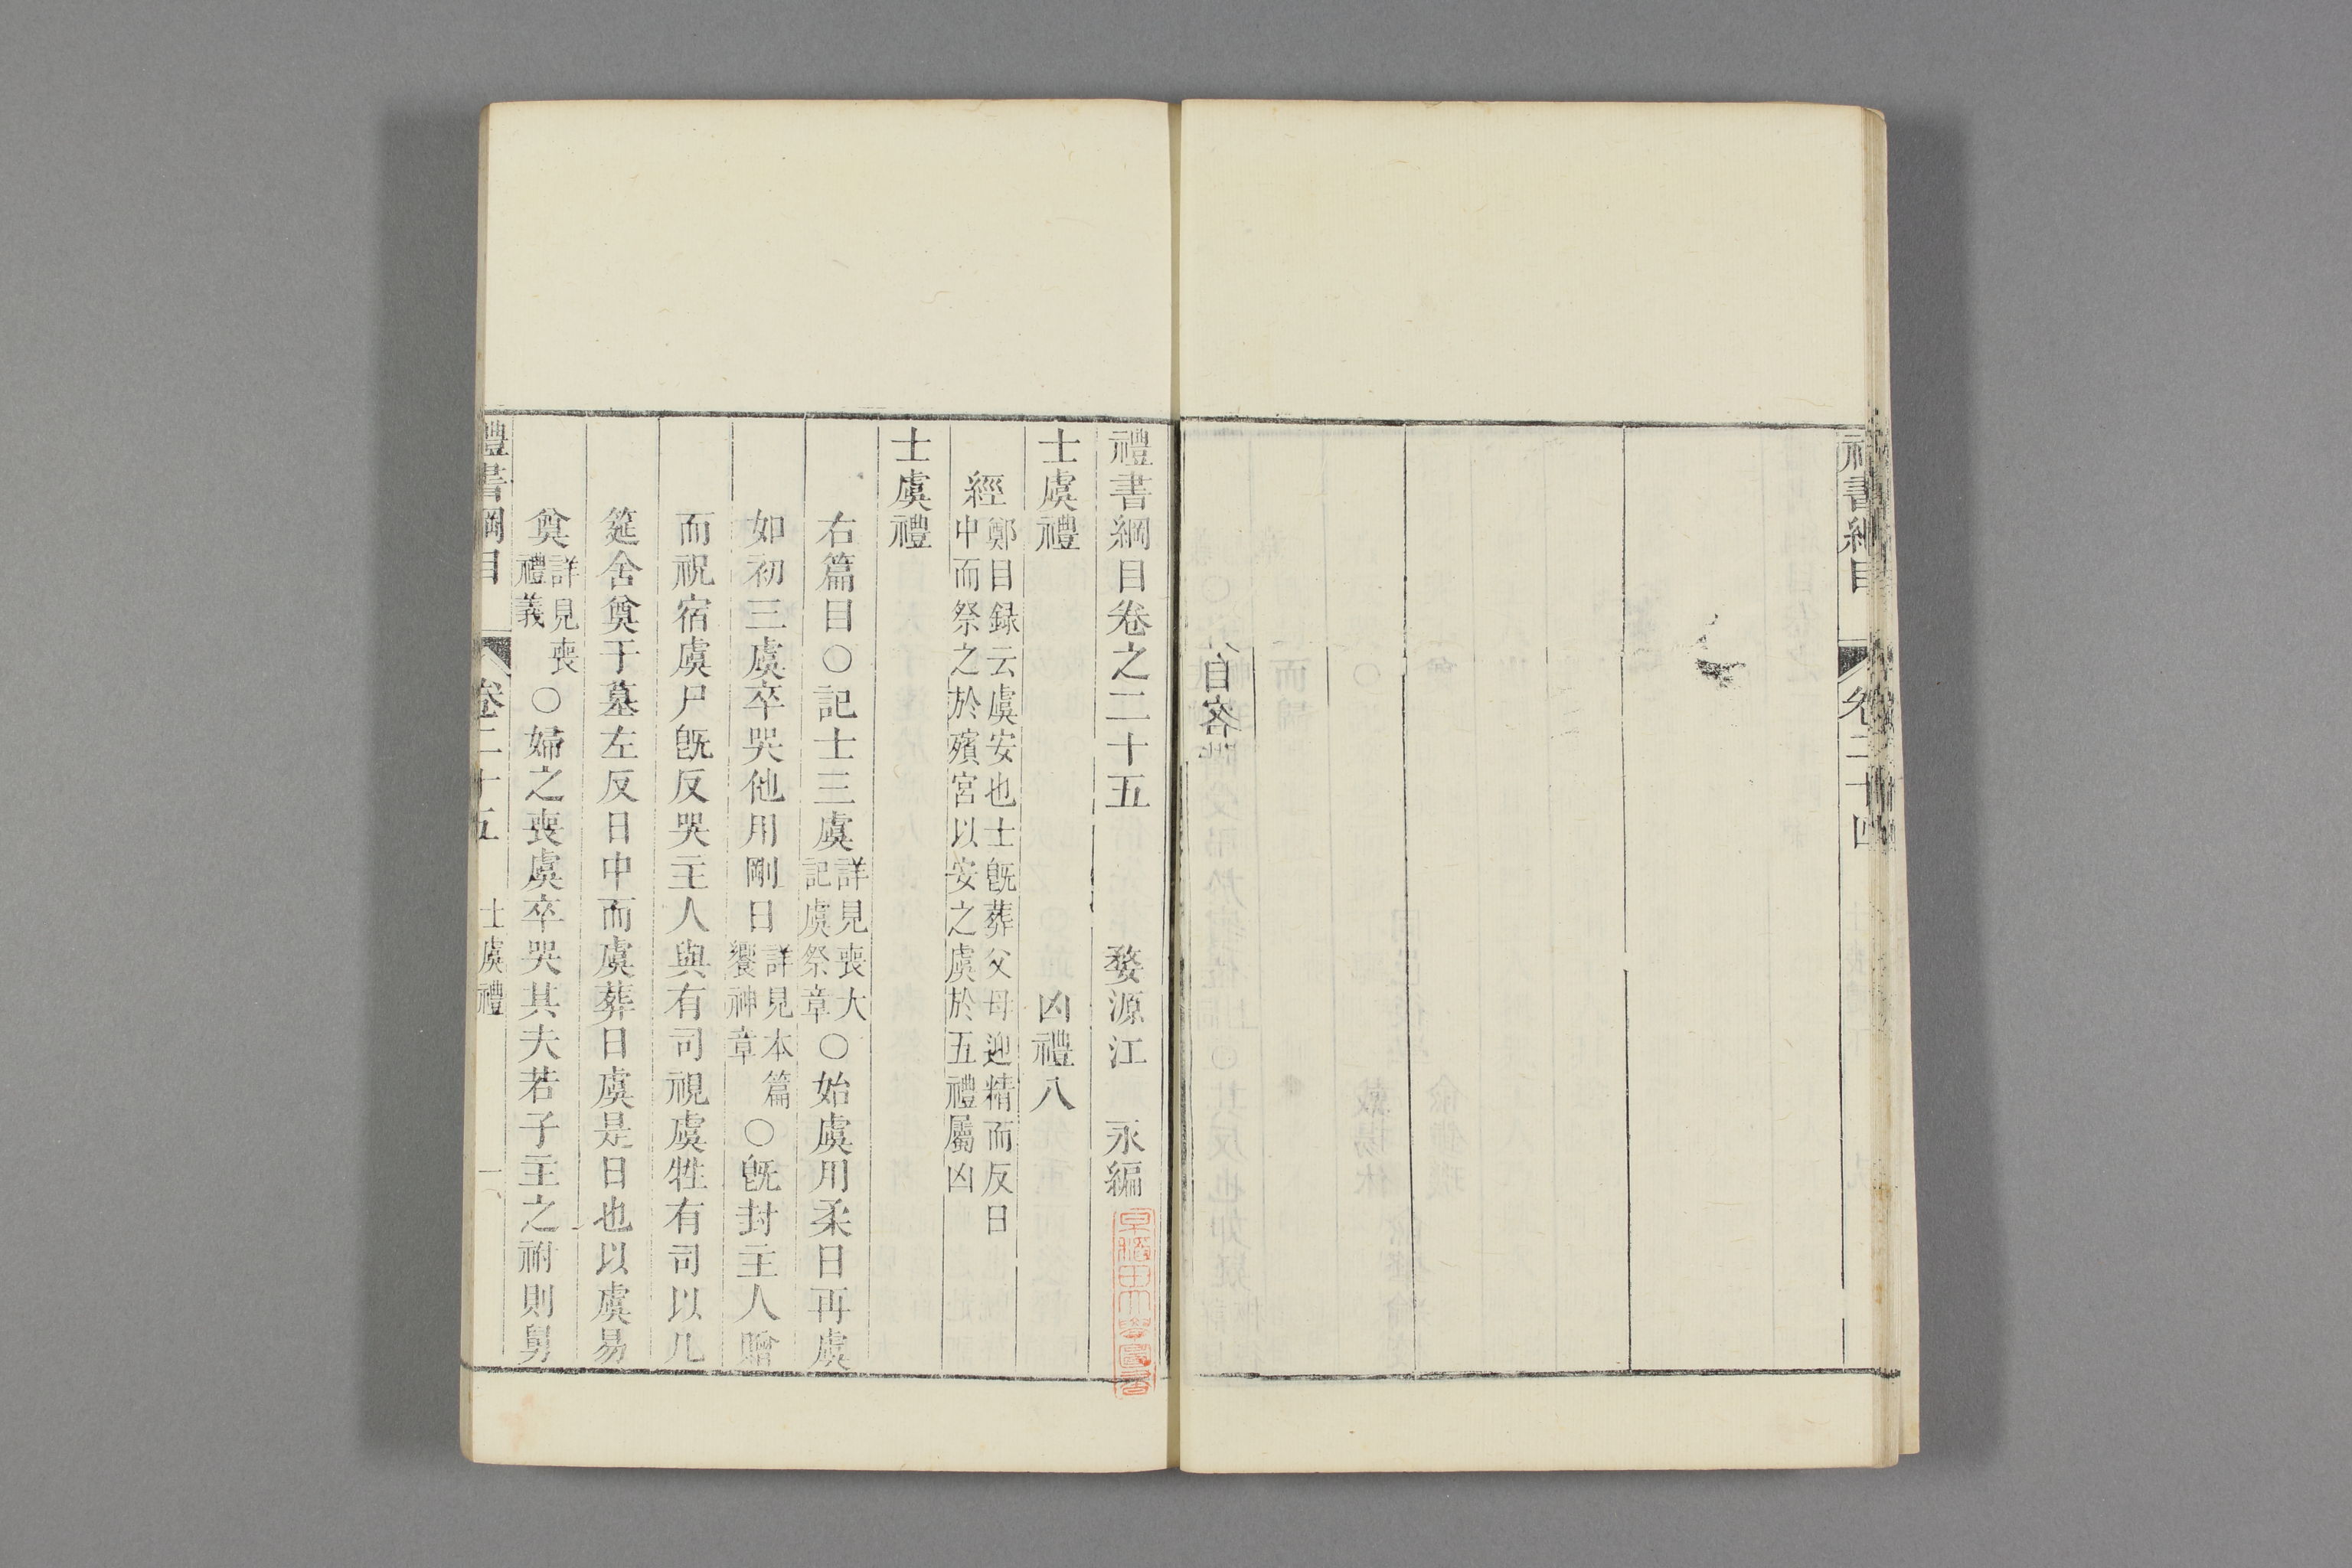 書綱目
卷二十四
自客
禮書綱目卷之二十五
婺源江 永編
早稻田大學圖書
士虞禮
凶禮八
經
鄭目録云虞安也士旣葬父母迎精而反日
中而祭之於殯宮以安之虞於五禮屬凶
士虞禮
右篇目○記士三虞詳見喪大記虞祭章○始虞用柔日再虞
如初三虞卒哭他用剛日詳見本篇饗神章○旣封主人贈
而祝宿虞尸旣反哭主人與有司視虞牲有司以几
筵舍奠于墓左反日中而虞葬日虞是日也以虞易
奠詳見喪禮義○婦之喪虞卒哭其夫若子主之祔則舅
禮書綱目
卷二十五
士虞禮
一